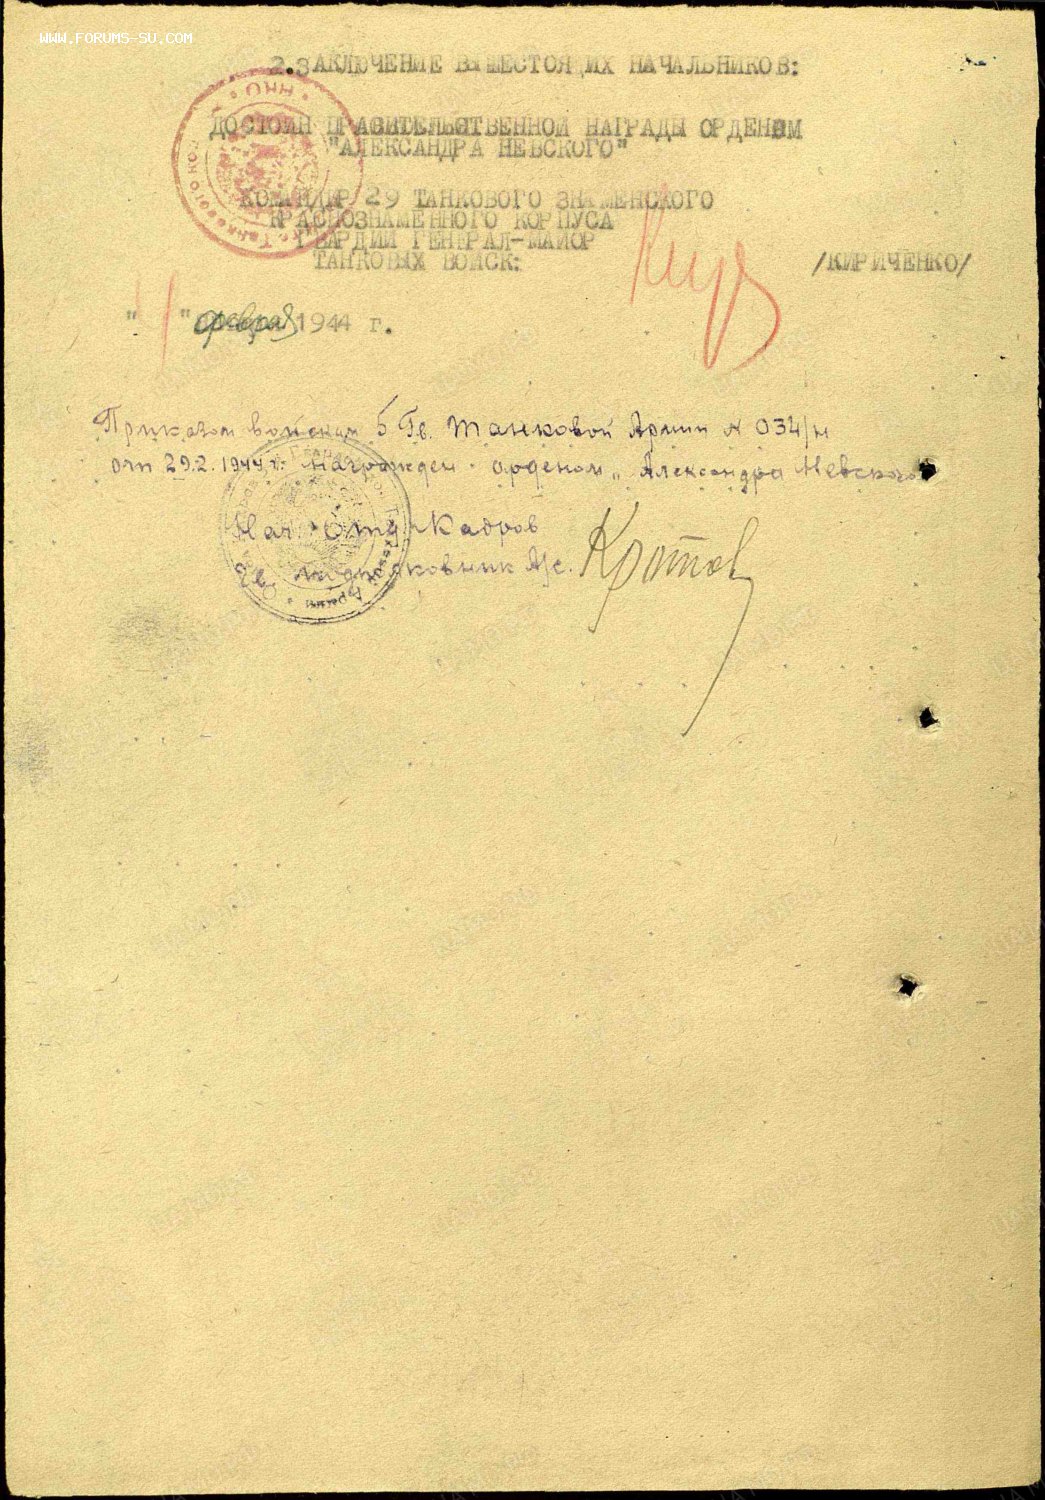 WWW.FORUMS-SU.COM
2.ЗАКЛЮЧЕНИЕ ВЫШЕСТОЯЩИХ НАЧАЛЬНИКОВ:
ДОСТОИН ПРАВИТЕЛЬСТВЕННОЙ НАГРАДЫ ОРДЕНОМ
"АЛЕКСАНДРА НЕВСКОГО"
КОМАНДИР 29 ТАНКОВОГО ЗНАМЕНСКОГО
КРАСНОЗНАМЕННОГО КОРПУСА
ГВАРДИИ ГЕНЕРАЛ-МАЙОР
ТАНКОВЫХ ВОЙСК:
/КИРИЧЕНКО/
" 1 " февраля 1944 г.
Приказом войскам 5 Гв. Танковой Армии N 034/н
от 29.2.1944 г. награжден орденом „Александра Невского"
Нач Отд Кадров
Гв. подполковник А/с. Кротов